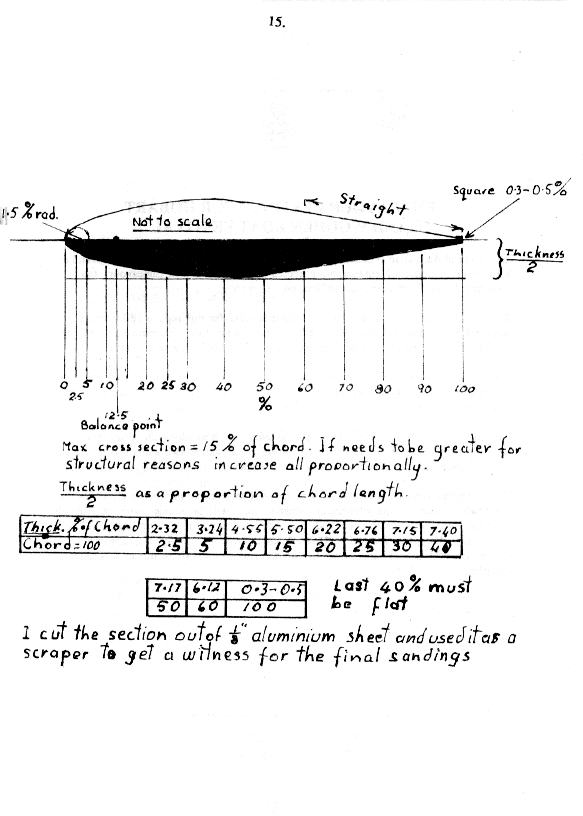 15.
Square 0.3-0.5%
Straight
1.5% rad.
Not to scale
Thickness
2
0 2.5 5 10 20 25 30 40 50 60 70 80 90 100
%
12.5
Balance point
Max cross section = 15% of chord. If needs to be greater for
structural reasons increase all proportionally.
Thickness
2
as a proportion of chord length.
Thick. % of Chord 2.32 3.24 4.55 5.50 6.22 6.76 7.15 7.40
Chord=100 2.5 5 10 15 20 25 30 40
7.17 6.12 0.3-0.5
50 60 100
Last 40% must
be flat
I cut the section out of 1/8" aluminium sheet and used it as a
scraper to get a witness for the final sandings